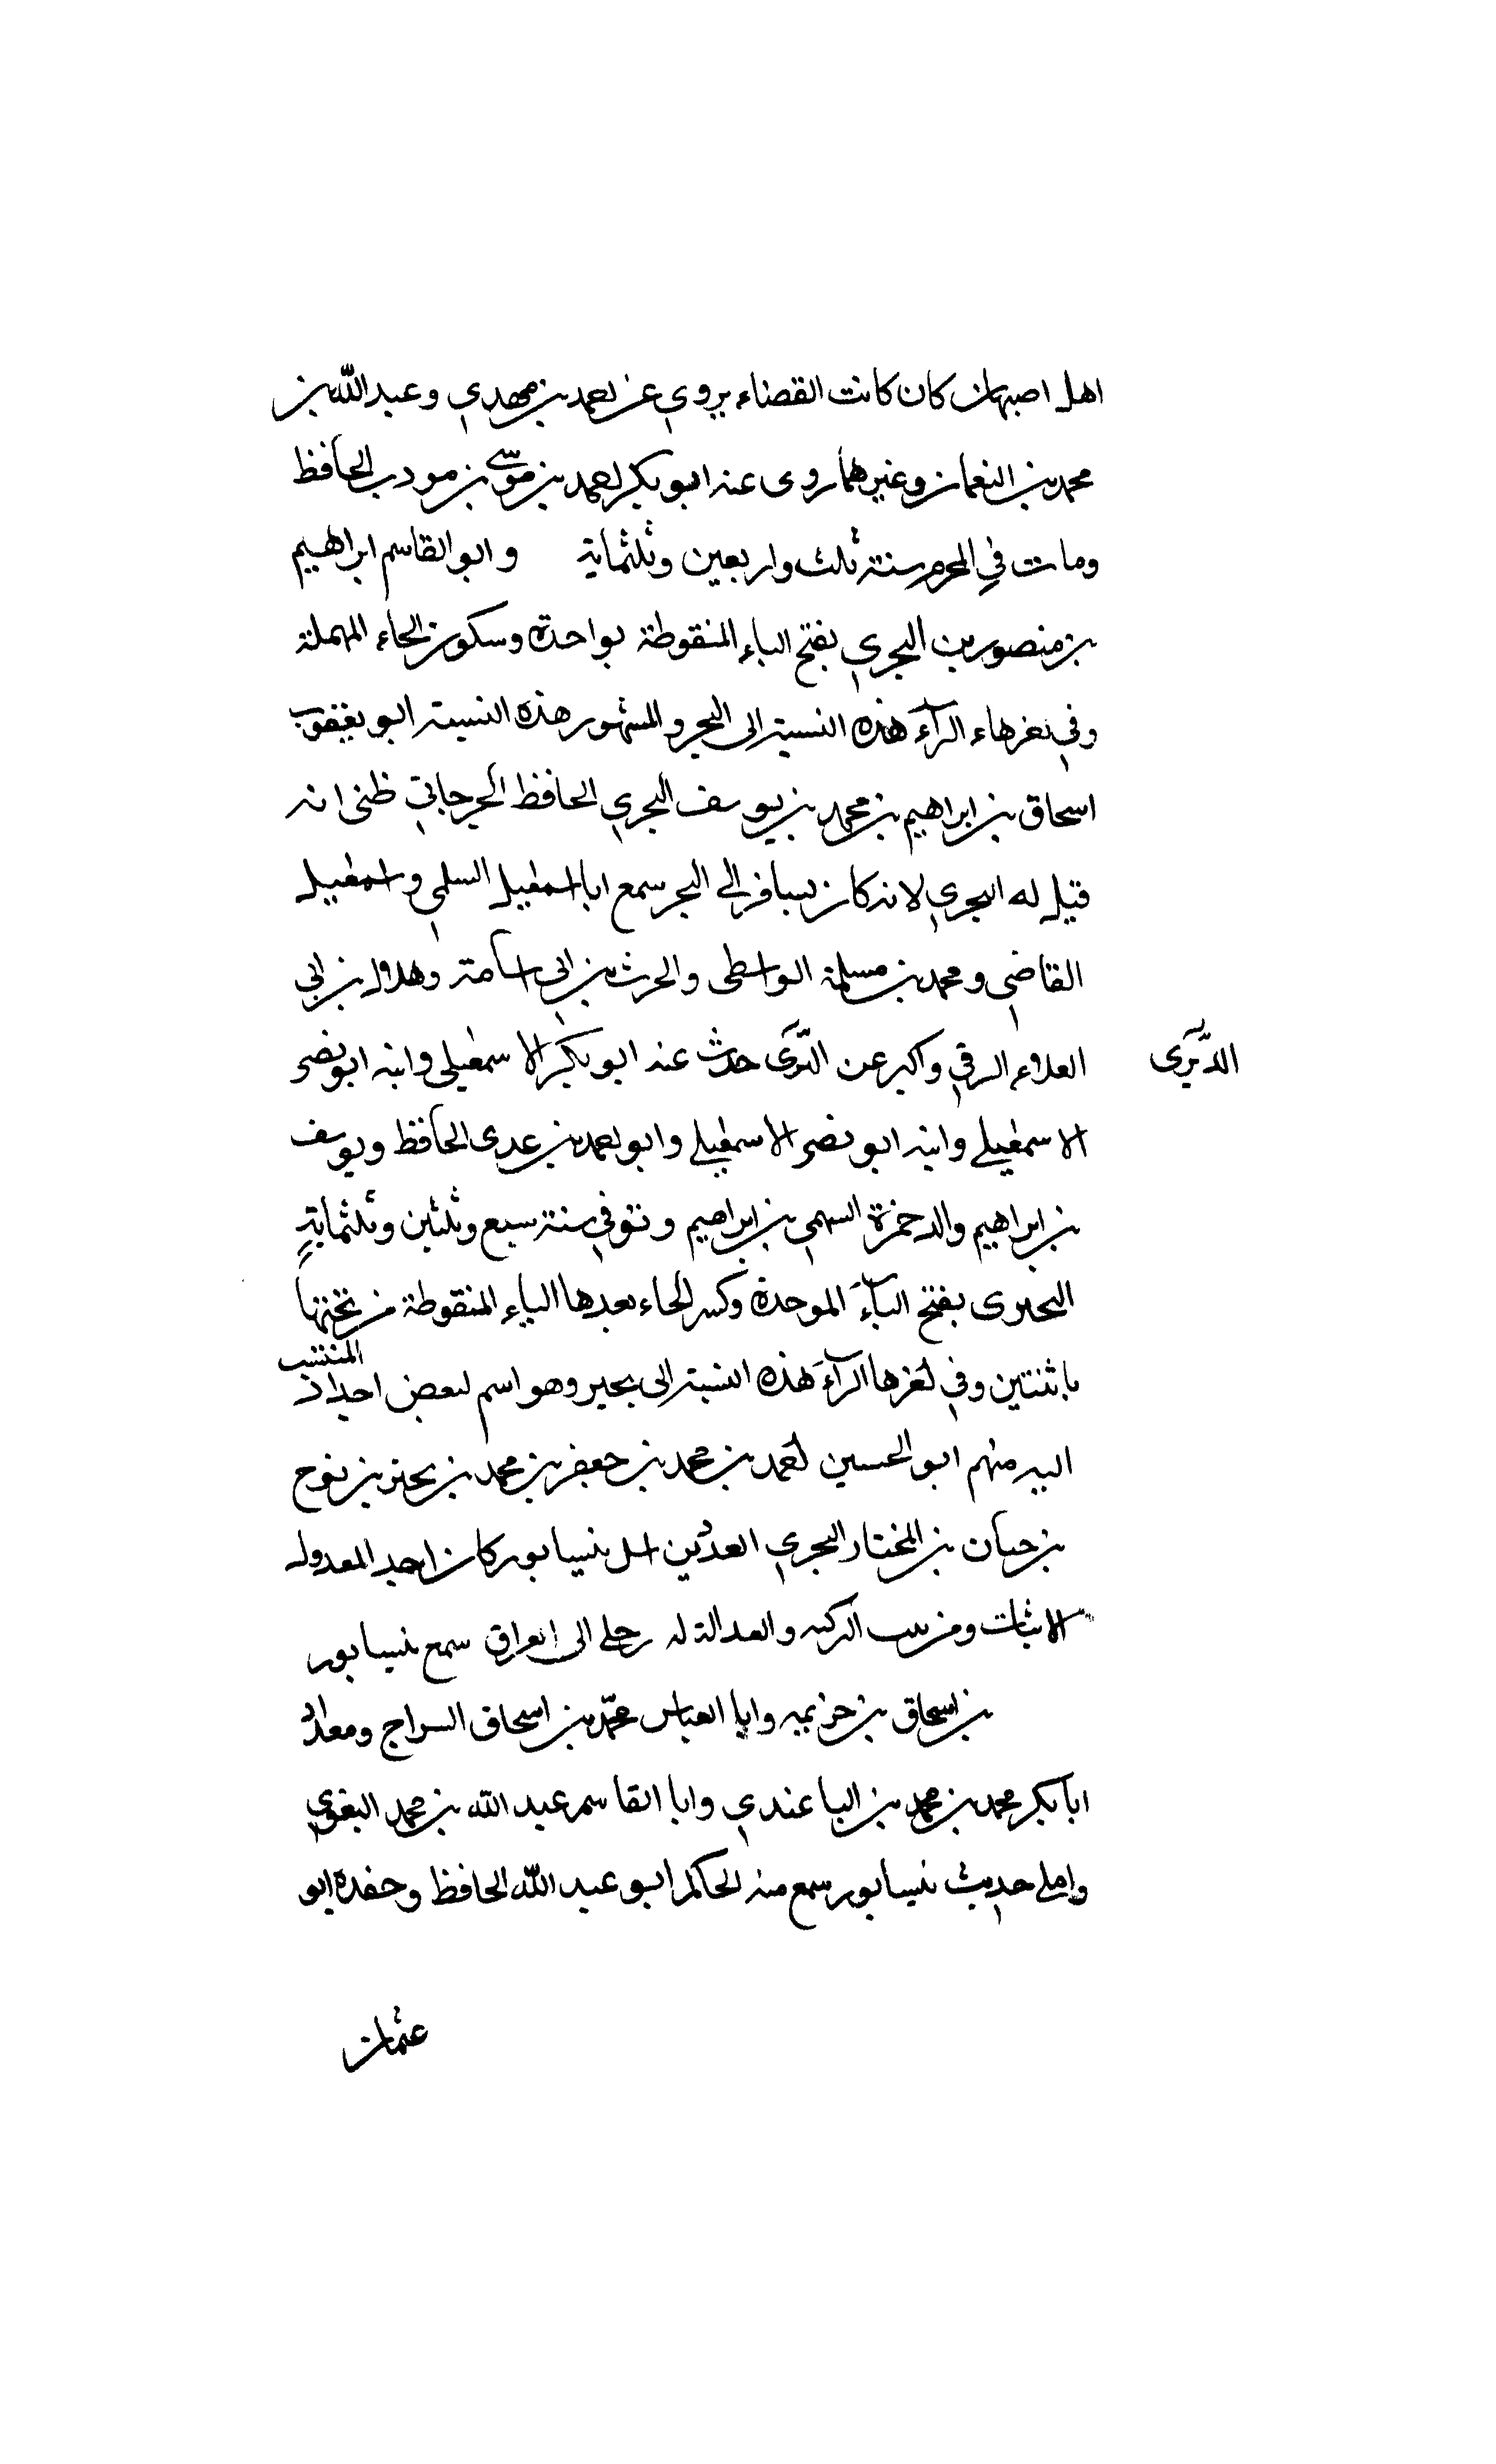 اهل اصبهان كان كاتب القضاء يروي عن احمد بن مهدي وعبد الله بن
محمد بن النعمان وغيرهما روى عنه ابو بكر احمد بن موسى بن مردويه الحافظ
ومات في المحرم سنة ثلث واربعين وثلثماية وابو القاسم ابراهيم
بن منصور بن البحري بفتح الباء المنقوطة بواحدة وسكون الحاء المهملة
وفي اخرها الرآء هذه النسبة الى البحر والمشهور هذه النسبة ابو يعقوب
اسحاق بن ابراهيم بن محمد بن يوسف البحري الحافظ الجرجاني ظني انه
قيل له البحري لانه كان يسافر الى البحر سمع ابا اسمعيل السلمي واسمعيل
القاضي ومحمد بن مسلمة الواسطى والحرث بن ابي اسامة وهلال بن ابي
العلاء الرقي واكبر عن الدبرى حدث عنه ابو بكر الاسمعيلي وابنه ابو نصر
الدبرى
الاسمعيلي وابنه ابو نصر الاسمعيلي وابو احمد بن عدى الحافظ ويوسف
بن ابراهيم والد حمزة السهمي بن ابراهيم وتوفي سنة سبع وثلثين وثلثماية
البحيرى بفتح الباء الموحدة وكسر الحاء بعدها الياء المنقوطة من تحتها
باثنتين وفي اخرها الرآء هذه النسبة الى بحير وهو اسم لبعض اجداد المنتسب
اليه منهم ابو الحسين احمد بن محمد بن جعفر بن محمد بن بحير بن نوح
بن حيان بن المختار البحري العدل من اهل نيسابور كان احد المعدوله
الاثبات ومن بيت التزكيه والعدالة له رحلة الى العراق سمع نيسابور
بن اسحاق بن خزيمه وابا العباس محمد بن اسحاق السراج وبغداد
ابا بكر محمد بن محمد بن الباغندي وابا القاسم عبد الله بن محمد البغوي
واملى حديث نيسابور سمع منه الحاكم ابو عبد الله الحافظ وحفده ابو
عثمان